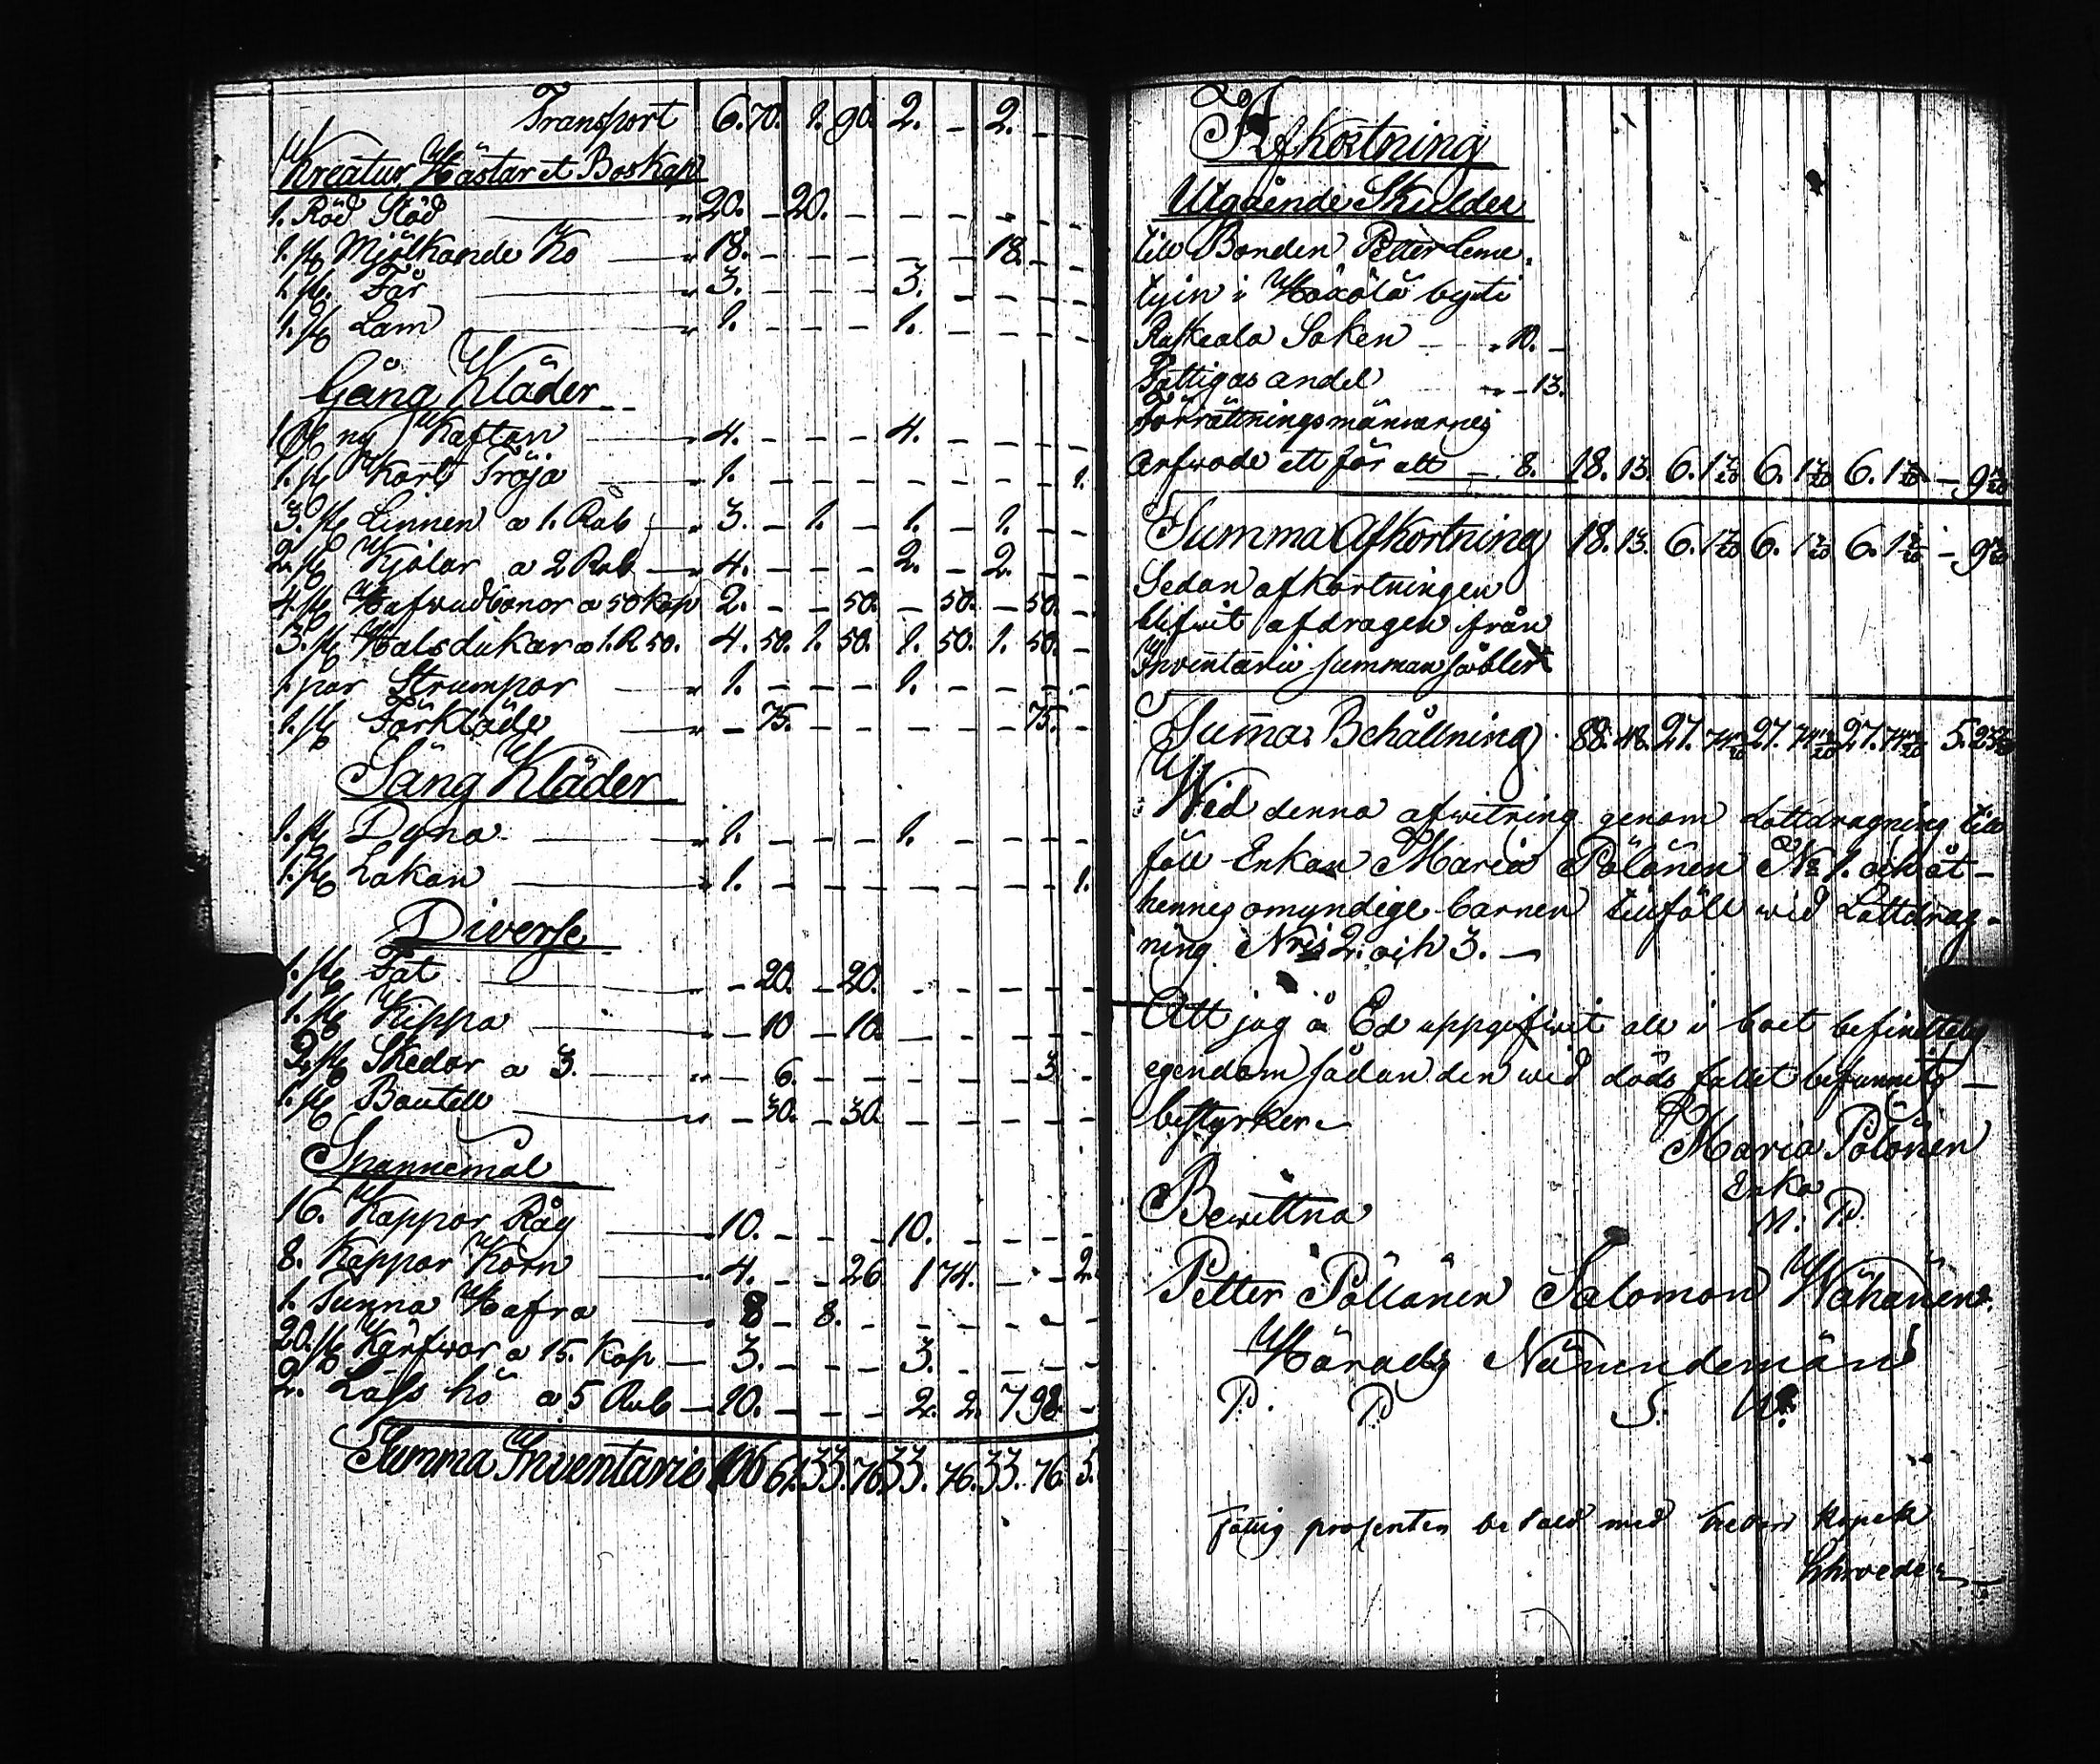 Transport 6. 70. 1. 90. 2. – 2. – –
Kreatur, Hästar et Boskap
1. Röd Stöd 20. – 20. – – – – – –
1. st. Mjölkande Ko 18. – – – – – 18. – –
1. st. Får 3. – – – 3. – – – –
1. st. Lam 1. – – – 1. – – – –
Gång Kläder
1 st. ny Kaftan 4. – – – 4. – – – –
1. st. Kort Tröja 1. – – – – – – – 1.
3. st. Linnen a 1. Rub 3. – 1. – 1. – 1. – –
2. st. Kjolar a 2 Rub 4. – – – 2. – 2. – –
4. st. Hufwudbonor a 50 Kop 2. – – 50. – 50. – 50. –
3. st. Halsdukar a 1. R 50. 4. 50. 1. 50. 1. 50. 1. 50. –
1. par Strumpor 1. – – – 1. – – – –
1. st. Förkläde – 75. – – – – – 75. –
Säng Kläder
1. st. Dyna 1. – – – 1. – – – –
1. st. Lakan 1. – – – – – – – 1.
Diverse
1. st. Fat – 20. – 20. – – – – –
1. st. Kippa – 10 – 10. – – – – –
2. st. Skedar a 3. – 6. – – – – – 3 –
1. st. Boutell – 30. – 30 – – – – –
Spannemål
16. Kappor Råg 10. – – – 10. – – – –
8. Kappor Korn 4. – – 26 1 74. – – 2.
1. Tunna Hafra 8 – 8. – – – – – –
20. st. Kärfwar a 15. Kop 3. – – – 3. – – – –
2. Lass hö a 5 Rub 10. – – – 2. 2. 7 98 –
Summa Inventarie 106 61. 33. 76. 33. 76. 33. 76. 5.
Afkortning
Utgående Skulder
till Bonden Petter Leme.
tyin i Höxölä by
Ruskeala Soken 10. –
Fattigas andel – 13.
Förrättningsmännernes
arfwode ett för allt – 8. 18. 13. 6. 1 6. 1 6. 1 – 9
Summa Afkortning 18. 13. 6. 1 6. 1 6. 1 – 9
Sedan afkortningen
blifwit afdragen från
Inventarii summan
Summa Behållning 88. 48. 27. 74 27. 74 27. 74 5. 23
Wid denna afwitring genom Lottdragning till
föll Enkan Maria Pölönen N: 1. och åt –
hennes omyndige barnen tillföll wid Lottdrag –
ning Nris 2. och 3. –
Att jag å Ed uppgifwit all i boet befinttelig
egendom sådan den wid döds fallet befunnits –
bestyrker –
Maria Pölönen
Enka
M. P.
Bewittna
Petter Pöllänen Salomon Wähänen.
Härads Nämndemän
P. P. S. W.
fattig prosenten betald med kopek